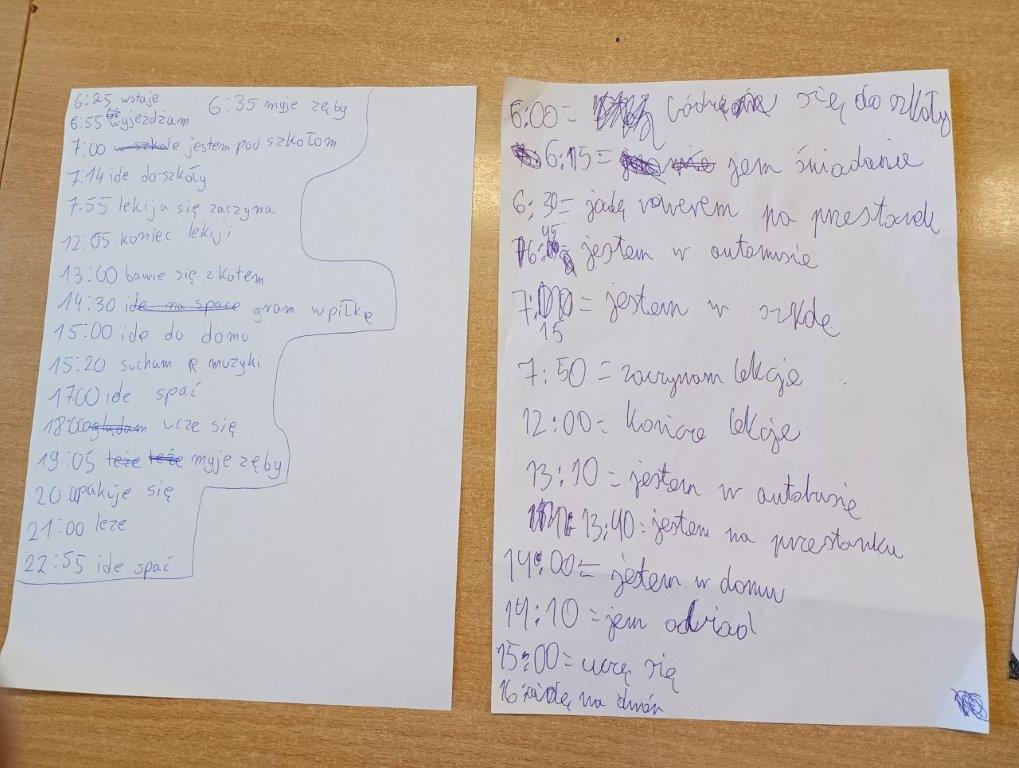 6:25 wstaje 6:35 myje zęby
6:55 wyjeżdzam
7:00 jestem pod szkołom
7.14 ide do szkoły
7:55 lekcja się zaczyna
12:05 koniec lekcji
13:00 bawie się z kotem
14:30 ide na space gram w piłkę
15:00 idę do domu
15:20 sucham muzyki
17:00 ide spać
18:00 oglądam ucze się
19:05 leże leże myje zęby
20:00 pakije się
21:00 leże
22:55 ide spać
6:00 = się do szkoły
6:15 = jem śniadanie
6:30 = jadę rowerem po przestanek
6:45 = jestem w automusie
7:15 = jestem w szkole
7:50 = zaczynam lekcje
12:00 = Kończe lekcje
13:10 = jestem w autobusie
13:40 = jestem na przestanku
14:00 = jestem w domu
14:10 = jem obiad
15:00 = uczę się
16:00 idę na dwór